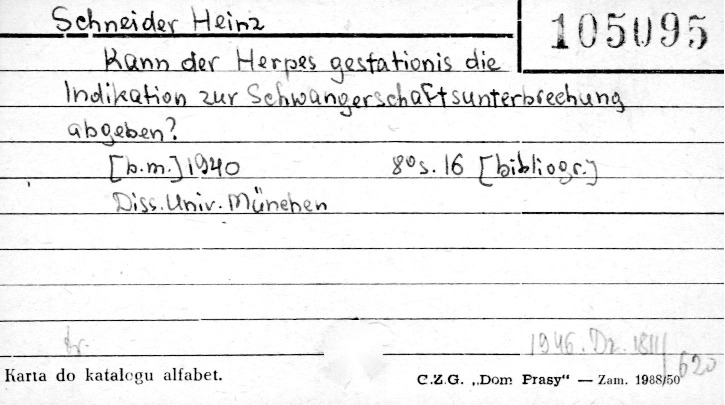 Schneider Heinz
105095
Kann der Herpes gestationis die
Indikation zur Schwangerschaftsunterbrechung
abgeben?
[b.m.] 1940 8° s. 16 [bibliogr.]
Diss. Univ. München
1946. Dz. 1811/620
Karta do katalogu alfabet.
C.Z.G. „Dom Prasy“ — Zam. 1988/50